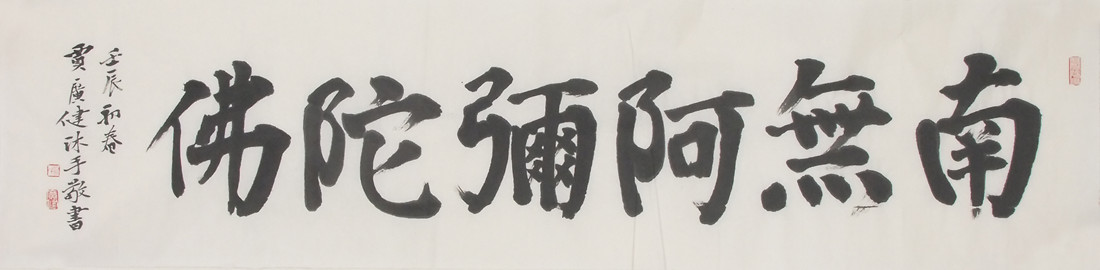 南無阿彌陀佛
壬辰初春
賈廣健沐手敬書